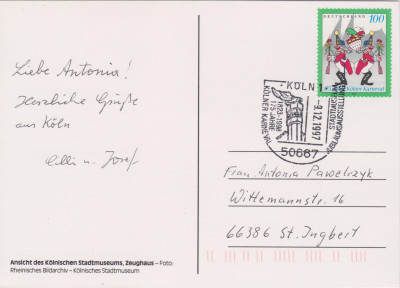 Liebe Antonia!
Herzliche Grüße
aus Köln
Lilli u. Josef
Ansicht des Kölnischen Stadtmuseums, Zeughaus – Foto:
Rheinisches Bildarchiv – Kölnisches Stadtmuseum
DEUTSCHLAND 100
Kölner Karneval
KÖLN 1
-9.12.1997
1823-1998
175 JAHRE
KÖLNER KARNEVAL
STADTMUSEUM
JUBILÄUMSAUSSTELLUNG
50667
Frau Antonia Pawelczyk
Wittemannstr. 16
66386 St. Ingbert